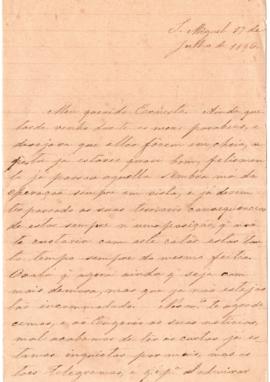 S. Miguel 27 de
Julho de 1896.
Meu querido Ernesto. Ainda que
tarde venho dar-te os meus parabens, e
desejava que elles fossem em cheio, e
já estares quasi bom, felizmen-
te já passou aquella sombra má da
operação sempre em vista, e já devem
ter passado as suas terriveis consequencias
de estar sempre n'uma posição, q. mui-
to custaria com este calôr estar tan-
to tempo sempre da mesma feitio.
q. agora ainda q. seja com
mais demora, mas que já não estejas
tão incommodado. te agrade-
cemos, e ao as suas noticias,
mal acabamos de lêr as cartas já es-
tamos inquietas por mais, mas os
teus telegramas, e admirar